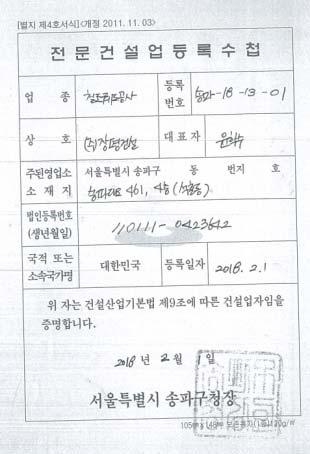 [별지 제4호서식]<개정 2011. 11. 03>
전문건설업등록수첩
업 종 공사 등록번호 송파-18-13-01
상 호 대표자
주된영업소 소재지 서울특별시 송파구 동 번지 호
송파대로 461, 4층 (석촌동)
법인등록번호 (생년월일) 110111-0423642
국적 또는 소속국가명 대한민국 등록일자 2018. 2. 1
위 자는 건설산업기본법 제9조에 따른 건설업자임을
증명합니다.
2018 년 2 월 1 일
서울특별시 송파구청장